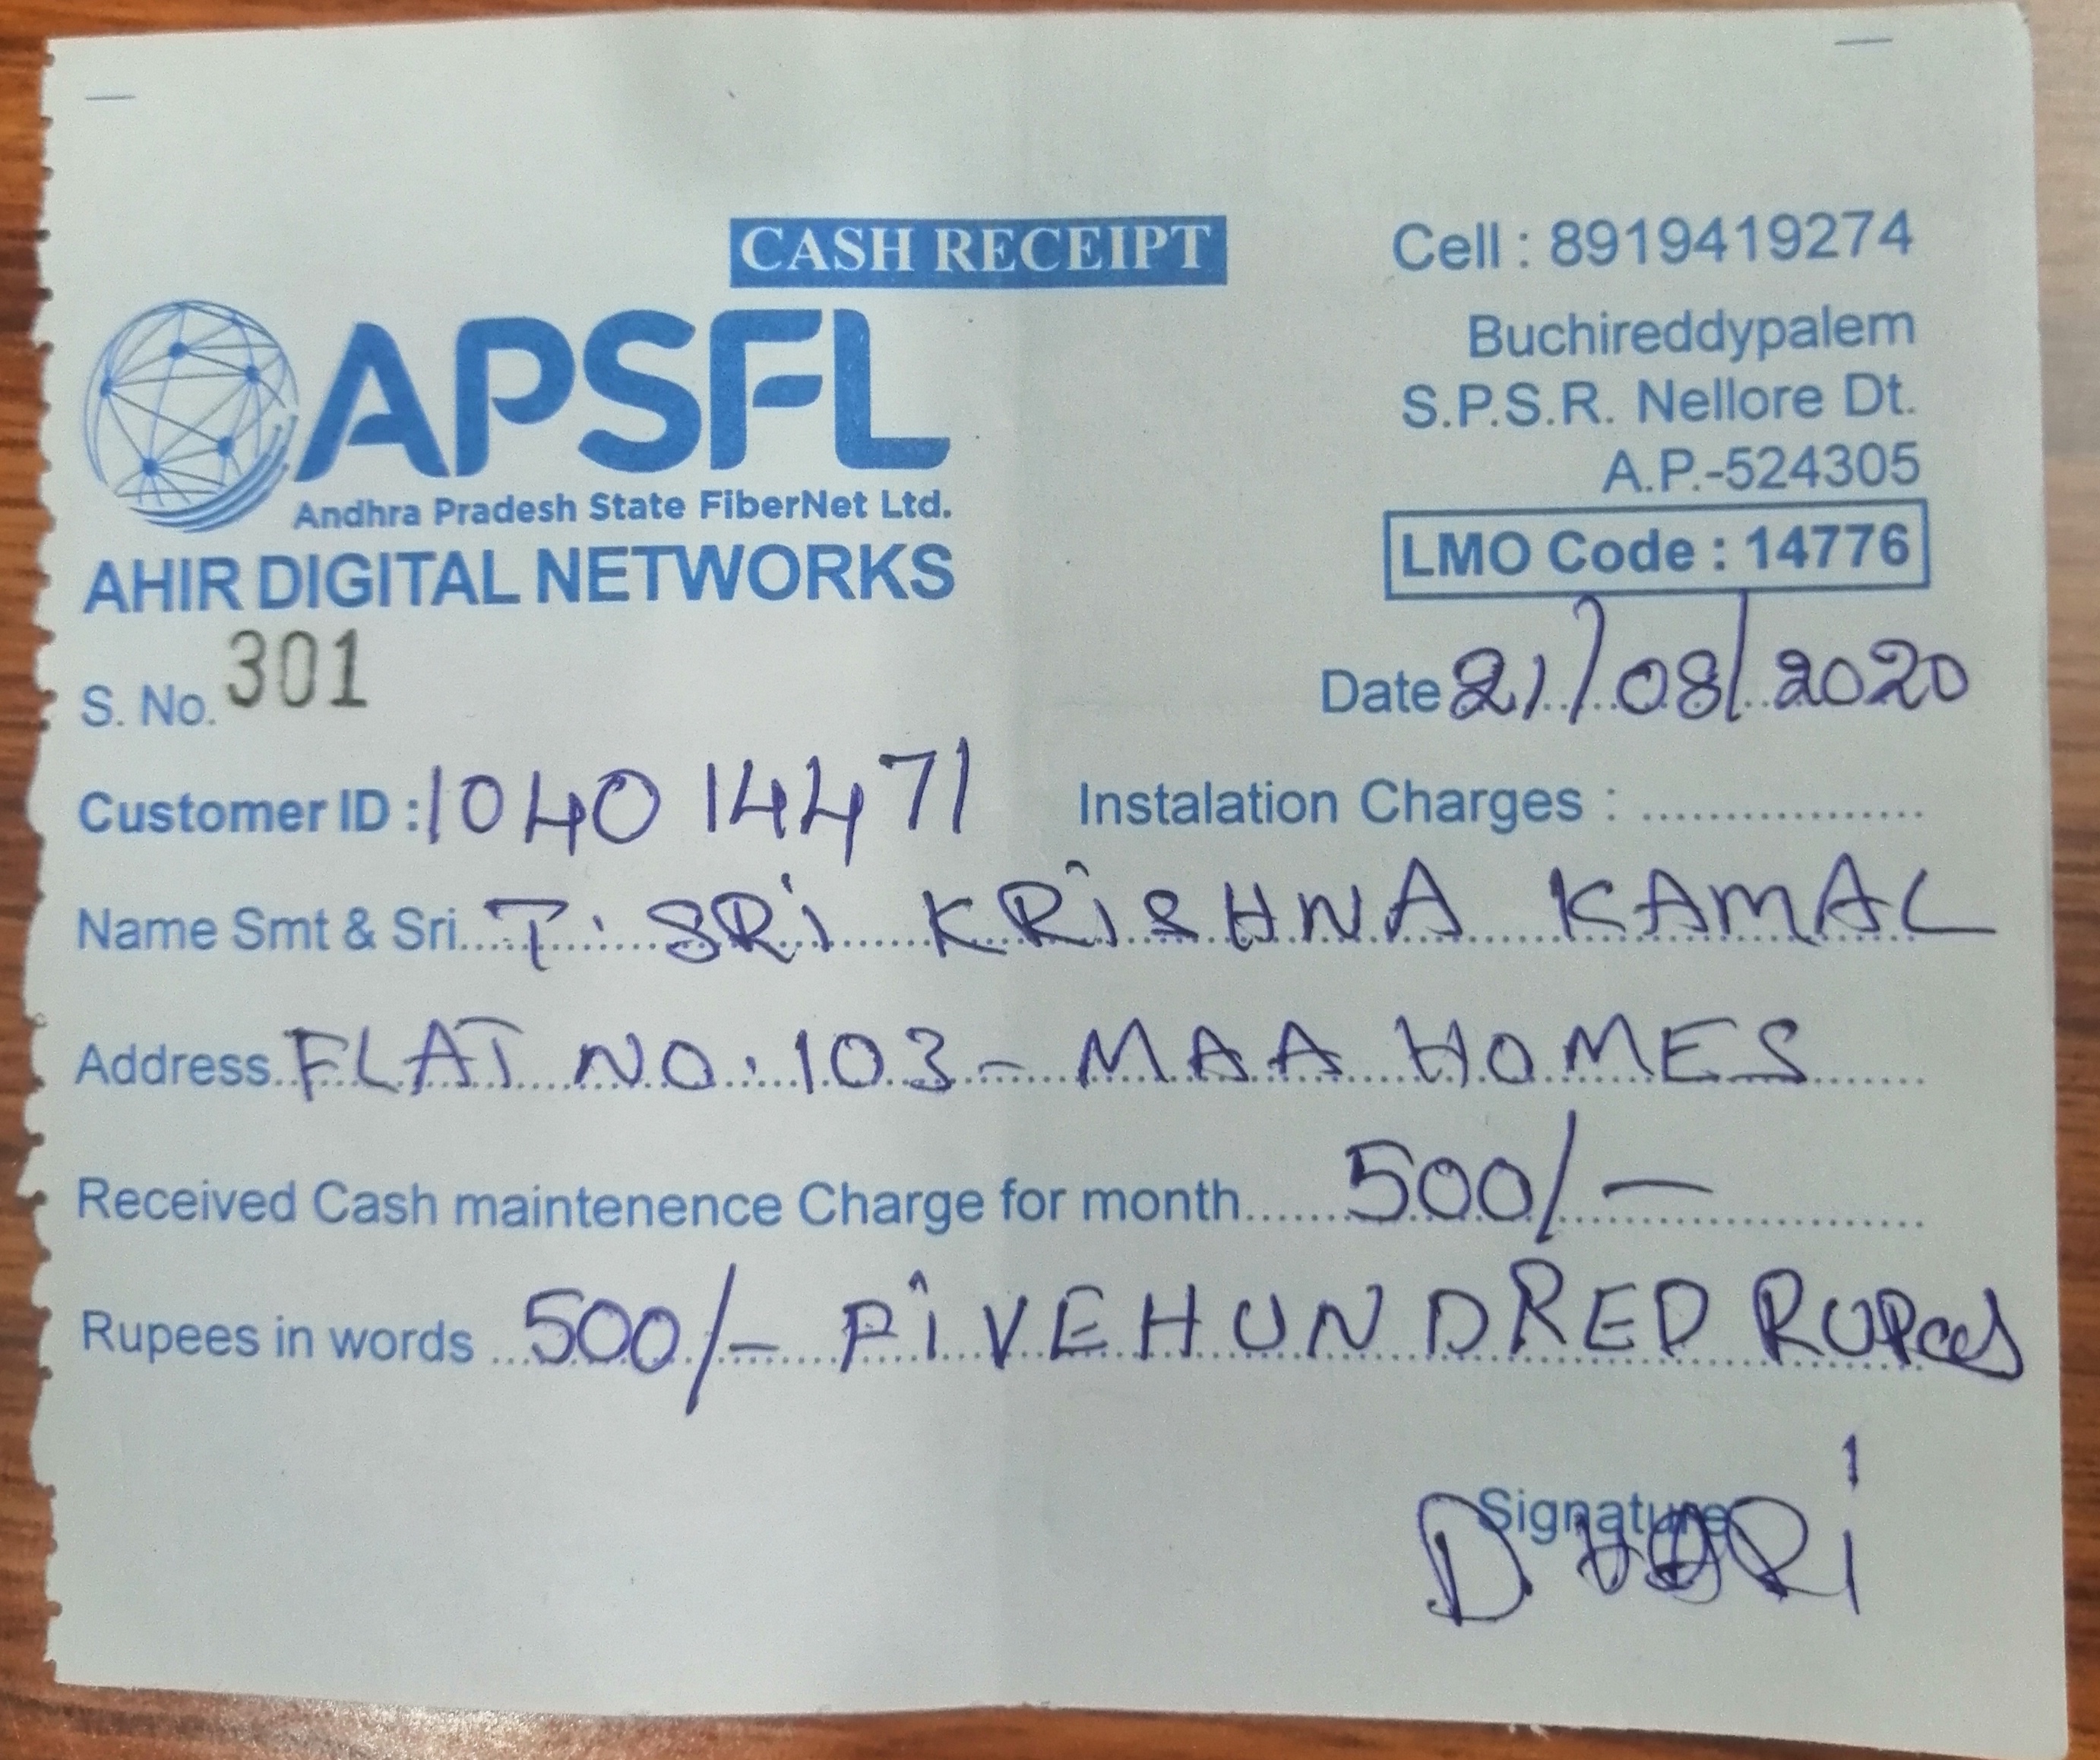 CASH RECEIPT
Cell : 8919419274
APSFL
Andhra Pradesh State FiberNet Ltd.
AHIR DIGITAL NETWORKS
Buchireddypalem
S.P.S.R. Nellore Dt.
A.P.-524305
LMO Code : 14776
S. No. 301
Date 21/08/2020
Customer ID : 104014471
Instalation Charges : .................
Name Smt & Sri T. SRi KRiSHNA KAMAL
Address FLAT NO: 103 - MAA HOMES
Received Cash maintenence Charge for month 500/-
Rupees in words 500/- FiVE HUNDRED RUPees
Signature